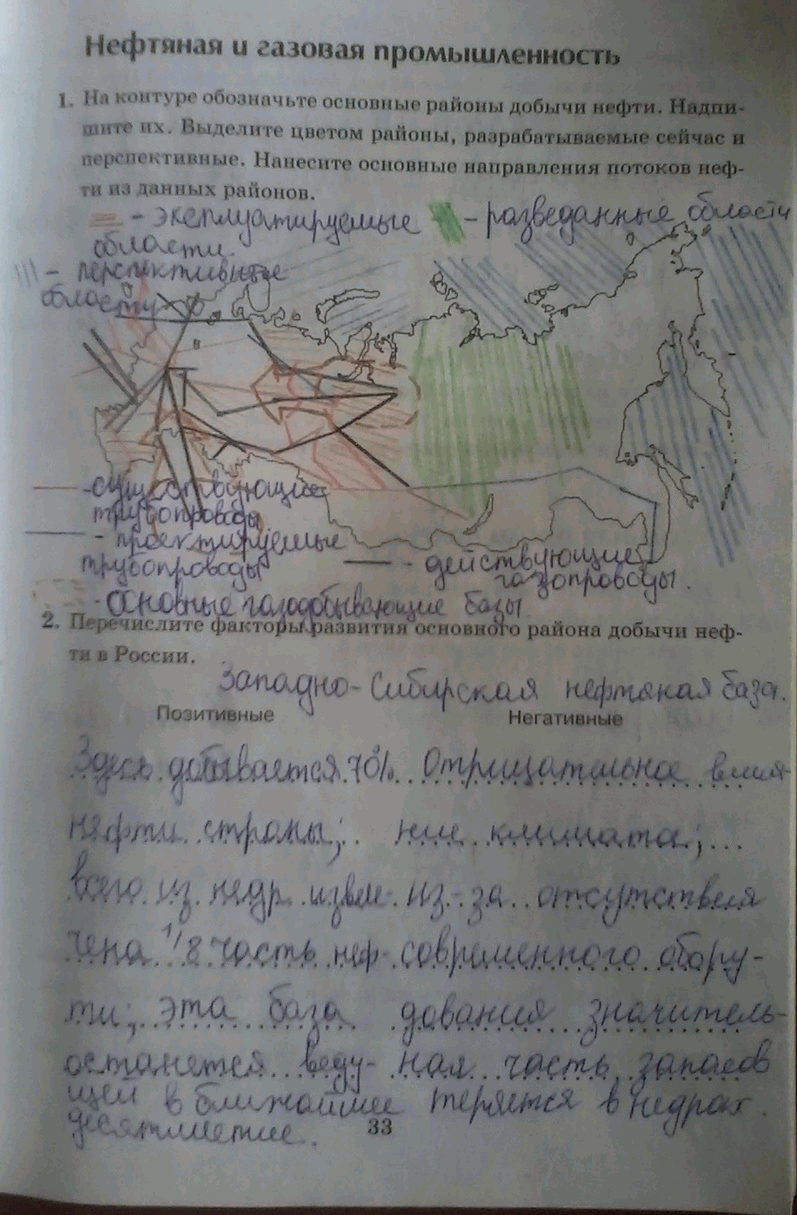 Нефтяная и газовая промышленность
1. На контуре обозначьте основные районы добычи нефти. Надпи-
шите их. Выделите цветом районы, разрабатываемые сейчас и
перспективные. Нанесите основные направления потоков неф-
ти из данных районов.
- эксплуатируемые
области
- разведанные области
- перспективные
области
- существующие
трубопроводы
- проектируемые
трубопроводы
- действующие
газопроводы.
- основные газодобывающие базы
2. Перечислите факторы развития основного района добычи неф-
ти в России.
Западно-Сибирская нефтяная база.
Позитивные
Здесь добывается 70%
нефти страны;
всего из недр извле-
чена 1/8 часть неф-
ти; эта база
останется веду-
щей в ближайшее
десятилетие.
Негативные
Отрицательное влия-
ние климата;
из-за отсутствия
современного обору-
дования значитель-
ная часть запасов
теряется в недрах.
33